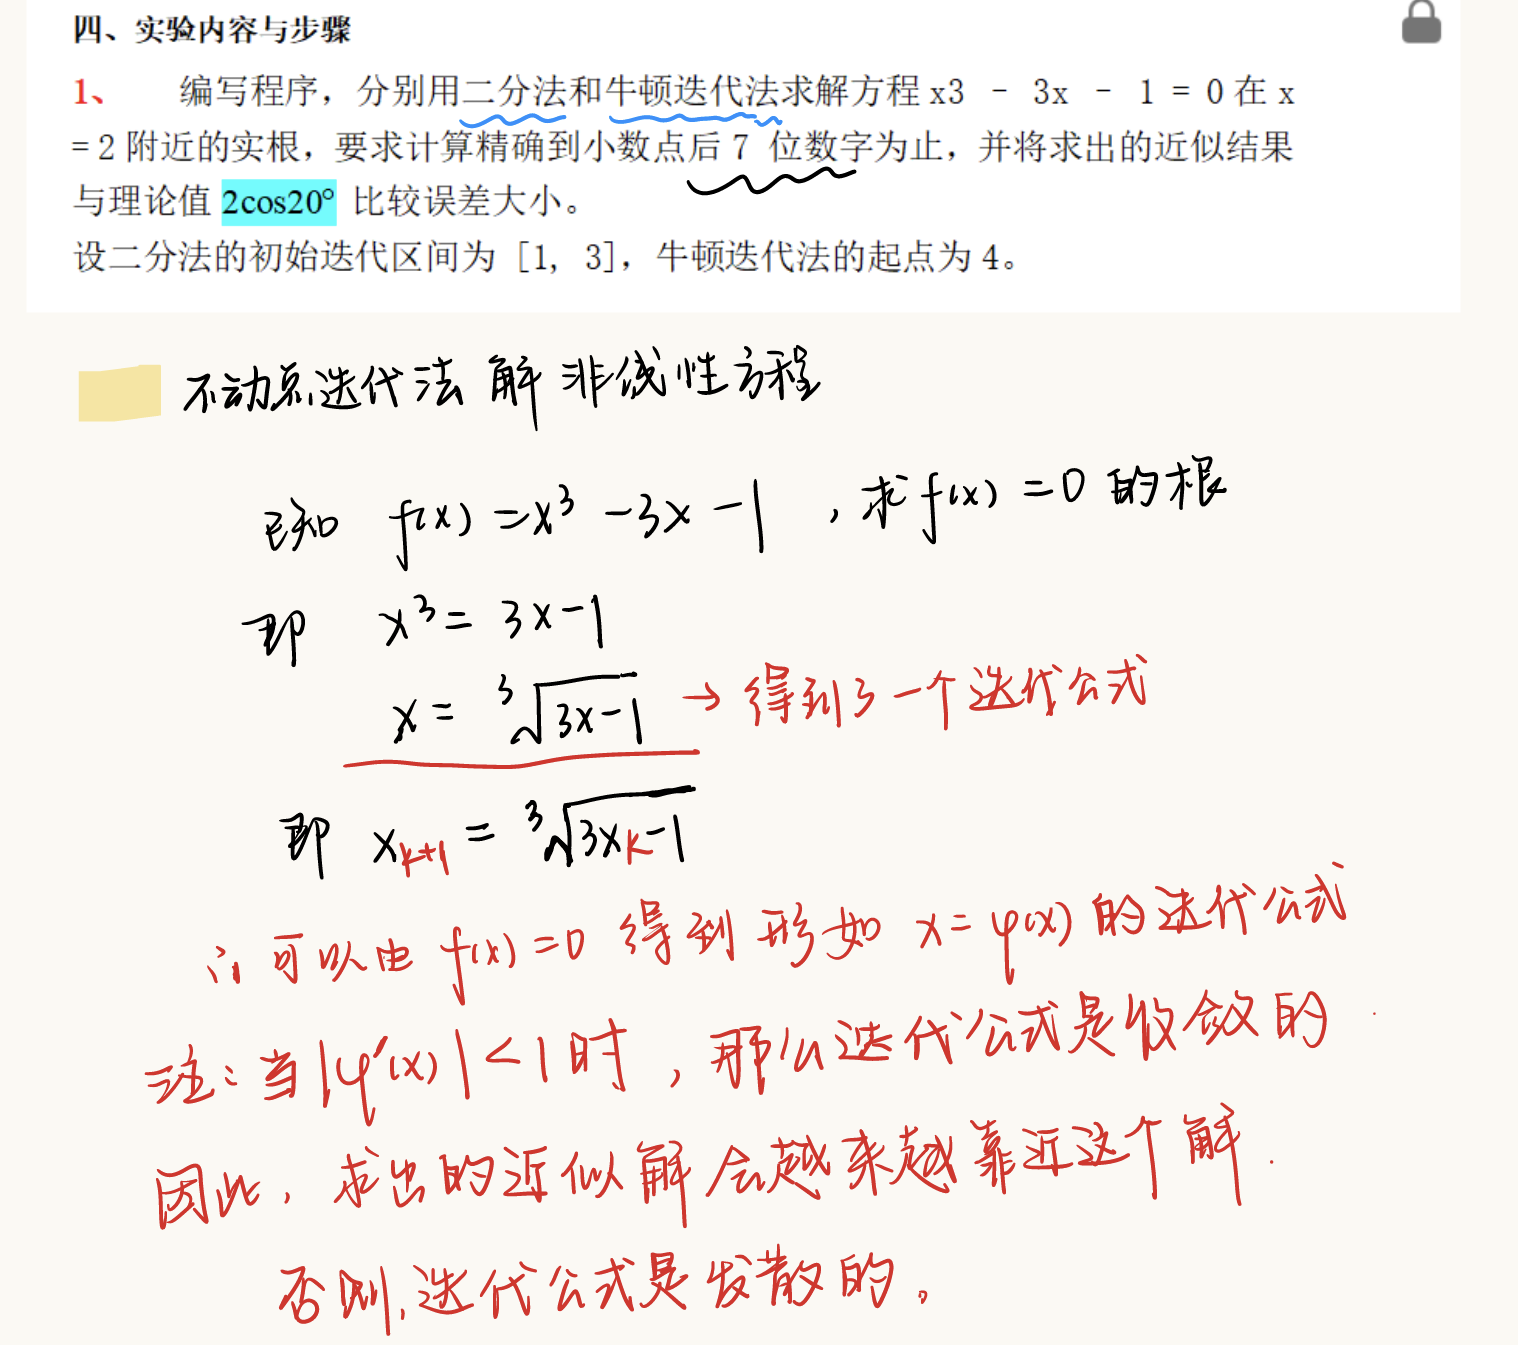 四、实验内容与步骤
1、 编写程序，分别用二分法和牛顿迭代法求解方程 x3 - 3x - 1 = 0 在 x
= 2 附近的实根，要求计算精确到小数点后 7 位数字为止，并将求出的近似结果
与理论值 2cos20° 比较误差大小。
设二分法的初始迭代区间为 [1, 3]，牛顿迭代法的起点为 4。
不动点迭代法 解 非线性方程
已知 f(x) = x³ - 3x - 1 ，求 f(x) = 0 的根
即 x³ = 3x - 1
x = ∛(3x-1) → 得到了一个迭代公式
即 xₖ₊₁ = ∛(3xₖ-1)
∴ 可以由 f(x) = 0 得到 形如 x = φ(x) 的迭代公式
注：当 |φ'(x)| < 1 时，那么迭代公式是收敛的
因此，求出的近似解会越来越靠近这个解.
否则，迭代公式是发散的。